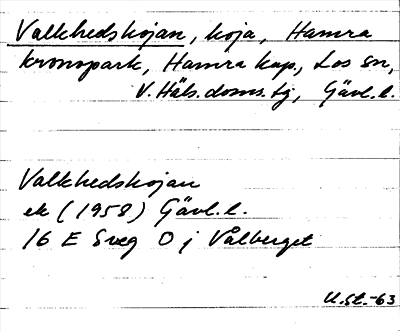 Valkhedskojan, koja, Hamra
kronopark, Hamra kap., Los sn,
V. Häls. doms. tg, Gävl. l.
Valkhedskojan
ek (1958) Gävl. l.
16 E Sveg O j Vålberget
U.St.-63